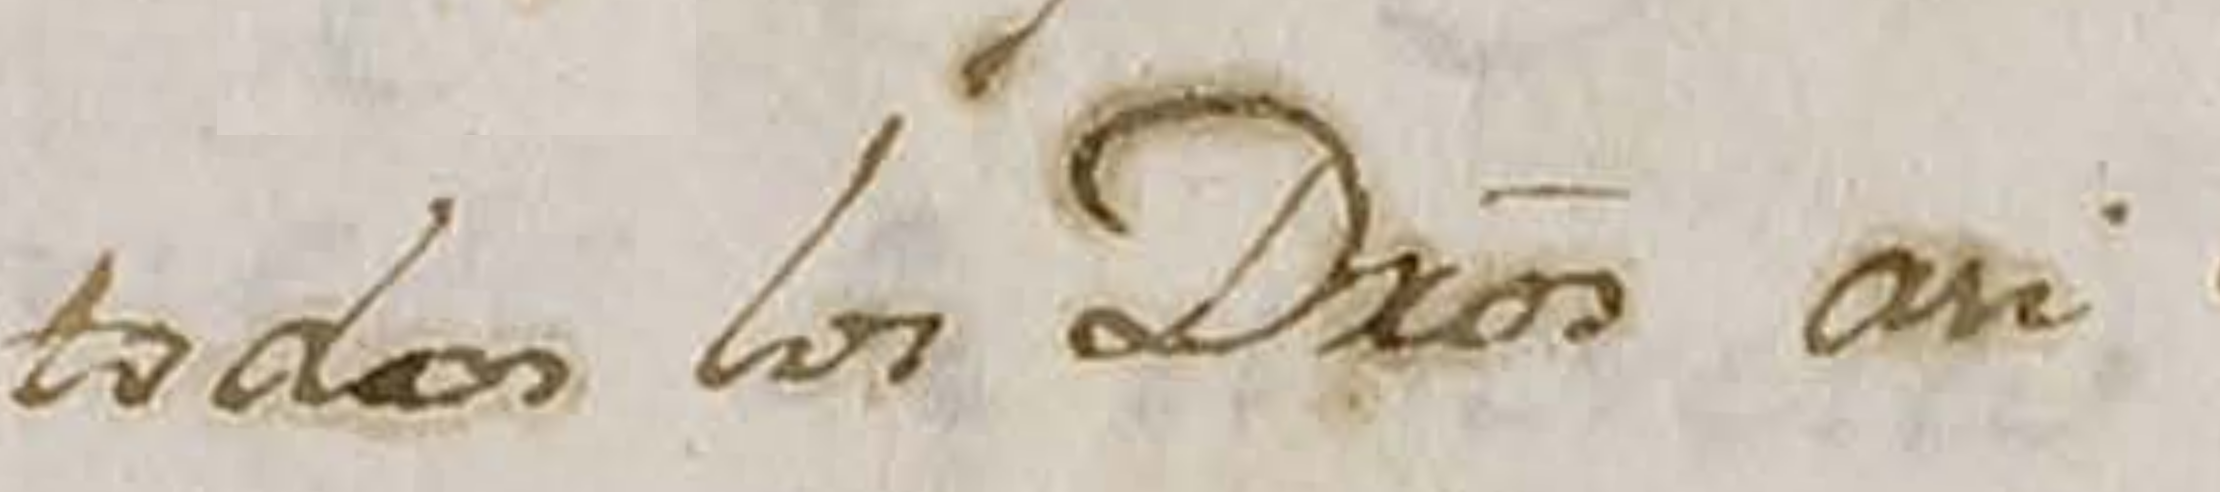 todos los Dxos asi